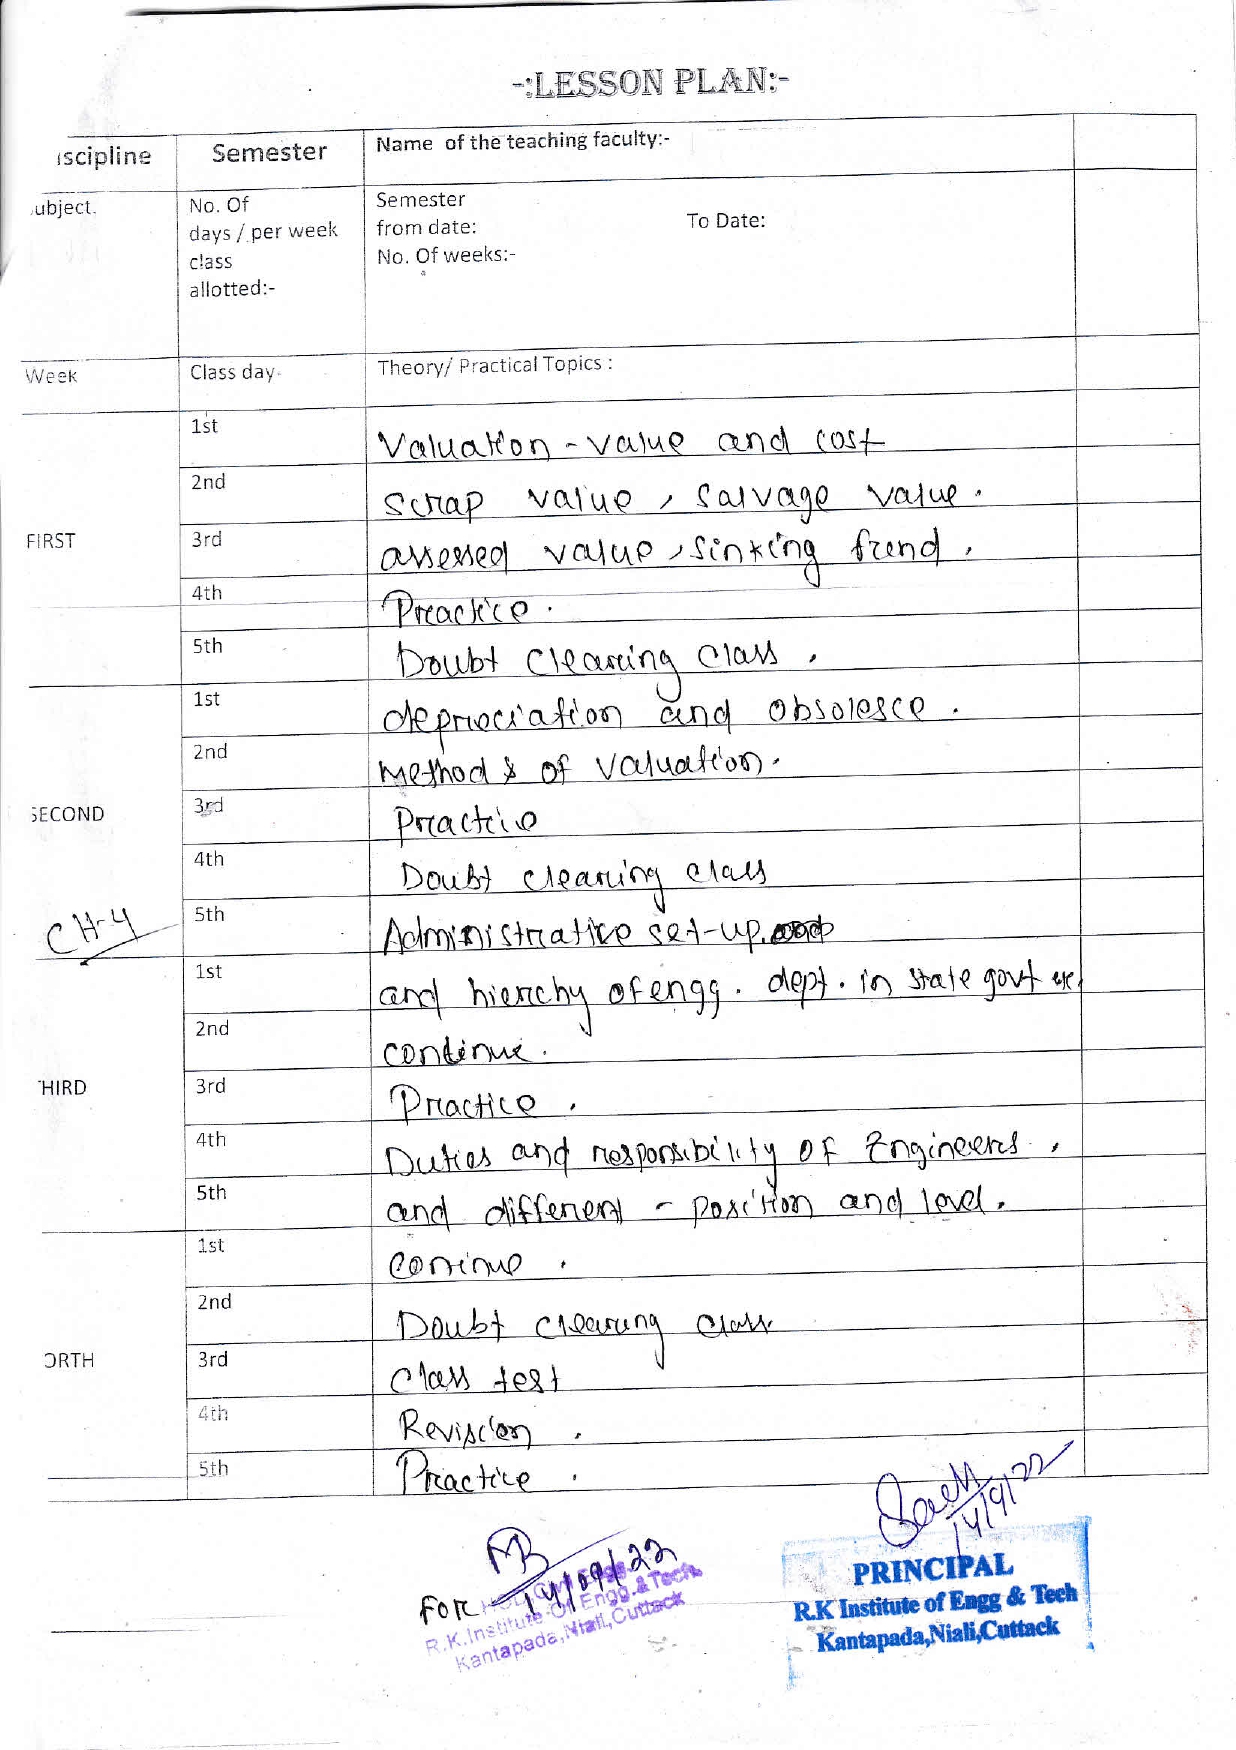 -:LESSON PLAN:-
iscipline Semester Name of the teaching faculty:-
ubject. No. Of days / per week class allotted:- Semester from date: To Date: No. Of weeks:-
Week Class day Theory/ Practical Topics :
FIRST
1st Valuation - value and cost
2nd Scrap value , Salvage value .
3rd assessed value , sinking fund .
4th Practice .
5th Doubt clearing class .
SECOND
1st depreciation and obsolesce .
2nd Methods of valuation .
3rd Practice
4th Doubt clearing class
CH-4
5th Administrative set-up
HIRD
1st and hierchy of engg . dept . in state govt
2nd continue .
3rd Practice .
4th Duties and responsibility of Engineers .
5th and different - position and level .
ORTH
1st continue .
2nd Doubt clearing class
3rd class test
4th Revision .
5th Practice .
14/9/22
14/09/22
FOR
R.K.Institute Of Engg.&Tech.
Kantapada,Niali,Cuttack
PRINCIPAL
R.K Institute of Engg & Tech
Kantapada,Niali,Cuttack